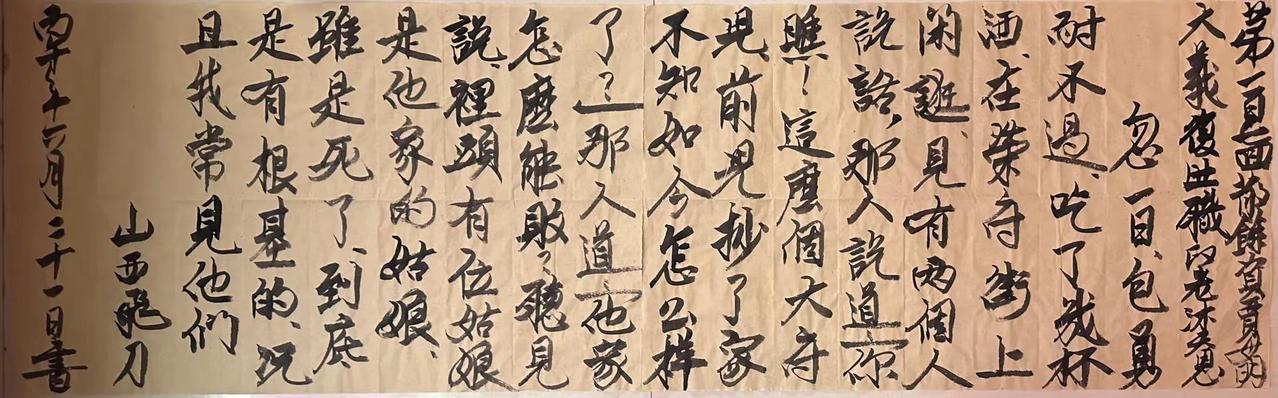 第一百七回散餘資賈母明
大義復世職政老沐天恩
忽一日、包勇
耐不過、吃了幾杯
酒、在榮府街上
閑誑、見有兩個人
說話，那人說道你
瞧、這麼個大府
現、前兒抄了家
不知如今怎么樣
了？那人道他家
怎麼能敗，聽見
說、裡頭有位姑娘
是他家的姑娘、
雖是死了、到底
是有根基的、況
且我常見他們
山西飛刀
丙午年六月二十一日書